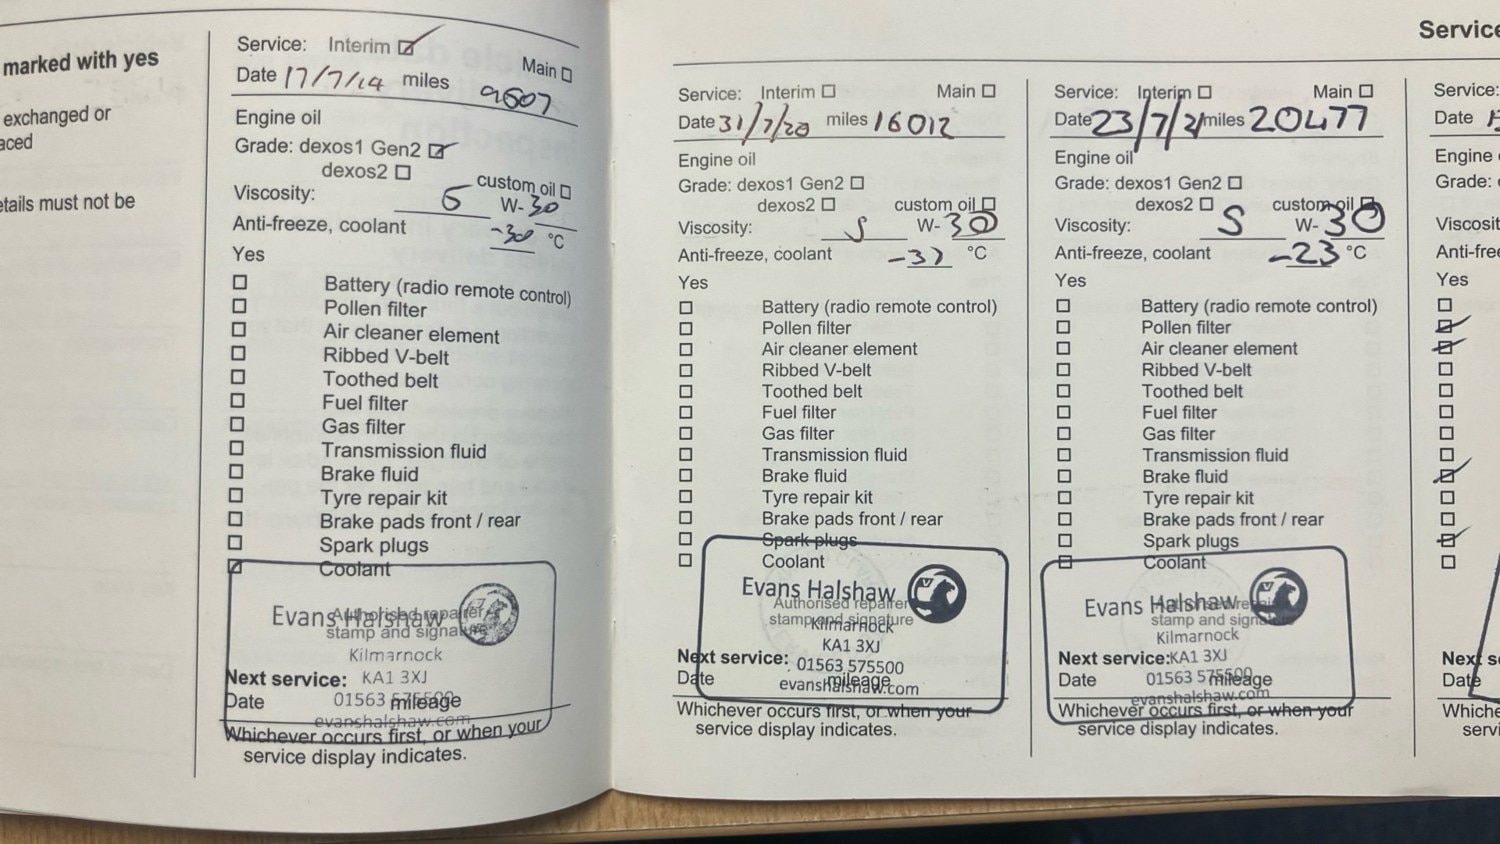 marked with yes
exchanged or
aced
etails must not be
Service: Interim
Main
Date 17/7/19 miles 9507
Engine oil
Grade: dexos1 Gen2
dexos2
custom oil
Viscosity: 5 W-30
Anti-freeze, coolant -30 °C
Yes
Battery (radio remote control)
Pollen filter
Air cleaner element
Ribbed V-belt
Toothed belt
Fuel filter
Gas filter
Transmission fluid
Brake fluid
Tyre repair kit
Brake pads front / rear
Spark plugs
Coolant
Evans Halshaw
Authorised repairer
stamp and signature
Kilmarnock
Next service: KA1 3XJ
Date 01563 575500 mileage
evanshalshaw.com
Whichever occurs first, or when your
service display indicates.
Service
Service: Interim Main
Date 31/7/20 miles 16012
Engine oil
Grade: dexos1 Gen2
dexos2 custom oil
Viscosity: 5 W-30
Anti-freeze, coolant -37 °C
Yes
Battery (radio remote control)
Pollen filter
Air cleaner element
Ribbed V-belt
Toothed belt
Fuel filter
Gas filter
Transmission fluid
Brake fluid
Tyre repair kit
Brake pads front / rear
Spark plugs
Coolant
Evans Halshaw
Authorised repairer
stamp and signature
Kilmarnock
KA1 3XJ
Next service: 01563 575500
Date mileage
evanshalshaw.com
Whichever occurs first, or when your
service display indicates.
Service: Interim Main
Date 23/7/21 miles 20477
Engine oil
Grade: dexos1 Gen2
dexos2 custom oil
Viscosity: 5 W-30
Anti-freeze, coolant -23 °C
Yes
Battery (radio remote control)
Pollen filter
Air cleaner element
Ribbed V-belt
Toothed belt
Fuel filter
Gas filter
Transmission fluid
Brake fluid
Tyre repair kit
Brake pads front / rear
Spark plugs
Coolant
Evans Halshaw
Authorised repairer
stamp and signature
Kilmarnock
Next service: KA1 3XJ
Date 01563 575500 mileage
evanshalshaw.com
Whichever occurs first, or when your
service display indicates.
Service:
Date
Engine
Grade:
Viscosit
Anti-free
Yes
Next s
Date
Whiche
servi